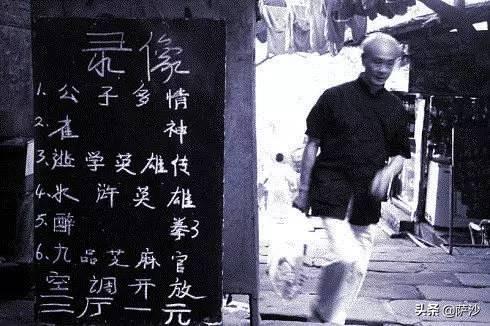 录像
1. 公子多情
2. 雀神
3. 逃学英雄传
4. 水浒英雄
5. 醉拳3
6. 九品芝麻官
空调开放
三厅一元
头条 @萨沙